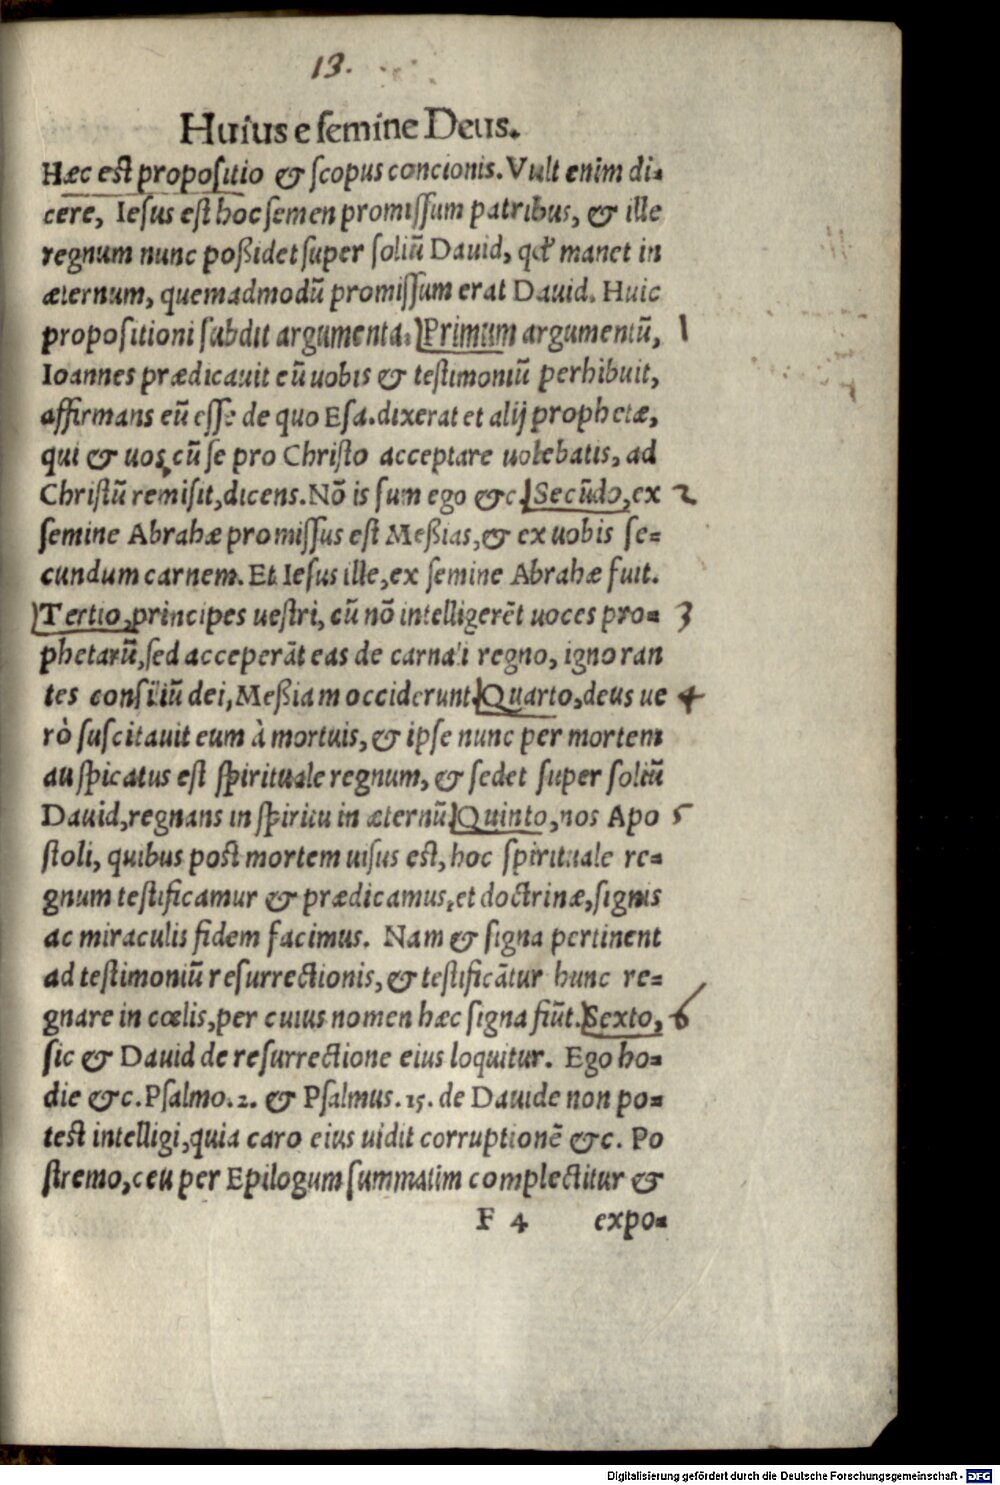 13.
Huius e semine Deus.
Hæc est propositio & scopus concionis. Vult enim di-
cere, Iesus est hoc semen promissum patribus, & ille
regnum nunc poßidet super soliũ Dauid, qđ manet in
æternum, quemadmodũ promissum erat Dauid. Huic
propositioni subdit argumenta. Primum argumentũ, 1
Ioannes prædicauit eũ uobis & testimoniũ perhibuit,
affirmans eũ esse de quo Esa. dixerat et alij prophetæ,
qui & uos, cũ se pro Christo acceptare uolebatis, ad
Christũ remisit, dicens. Nõ is sum ego &c. Secũdo, ex 2
semine Abrahæ promissus est Meßias, & ex uobis se=
cundum carnem. Et Iesus ille, ex semine Abrahæ fuit.
Tertio, principes uestri, cũ nõ intelligerẽt uoces pro= 3
phetarũ, sed acceperãt eas de carnali regno, ignoran
tes consiliũ dei, Meßiam occiderunt. Quarto, deus ue 4
rò suscitauit eum à mortuis, & ipse nunc per mortem
auspicatus est spirituale regnum, & sedet super soliũ
Dauid, regnans in spiritu in æternũ. Quinto, nos Apo 5
stoli, quibus post mortem uisus est, hoc spirituale re=
gnum testificamur & prædicamus, et doctrinæ, signis
ac miraculis fidem facimus. Nam & signa pertinent
ad testimoniũ resurrectionis, & testificãtur hunc re=
gnare in cœlis, per cuius nomen hæc signa fiũt. Sexto, 6
sic & Dauid de resurrectione eius loquitur. Ego ho=
die &c. Psalmo. 2. & Psalmus. 15. de Dauide non po=
test intelligi, quia caro eius uidit corruptionẽ &c. Po
stremo, ceu per Epilogum summatim complectitur &
F 4 expo=
Digitalisierung gefördert durch die Deutsche Forschungsgemeinschaft - DFG